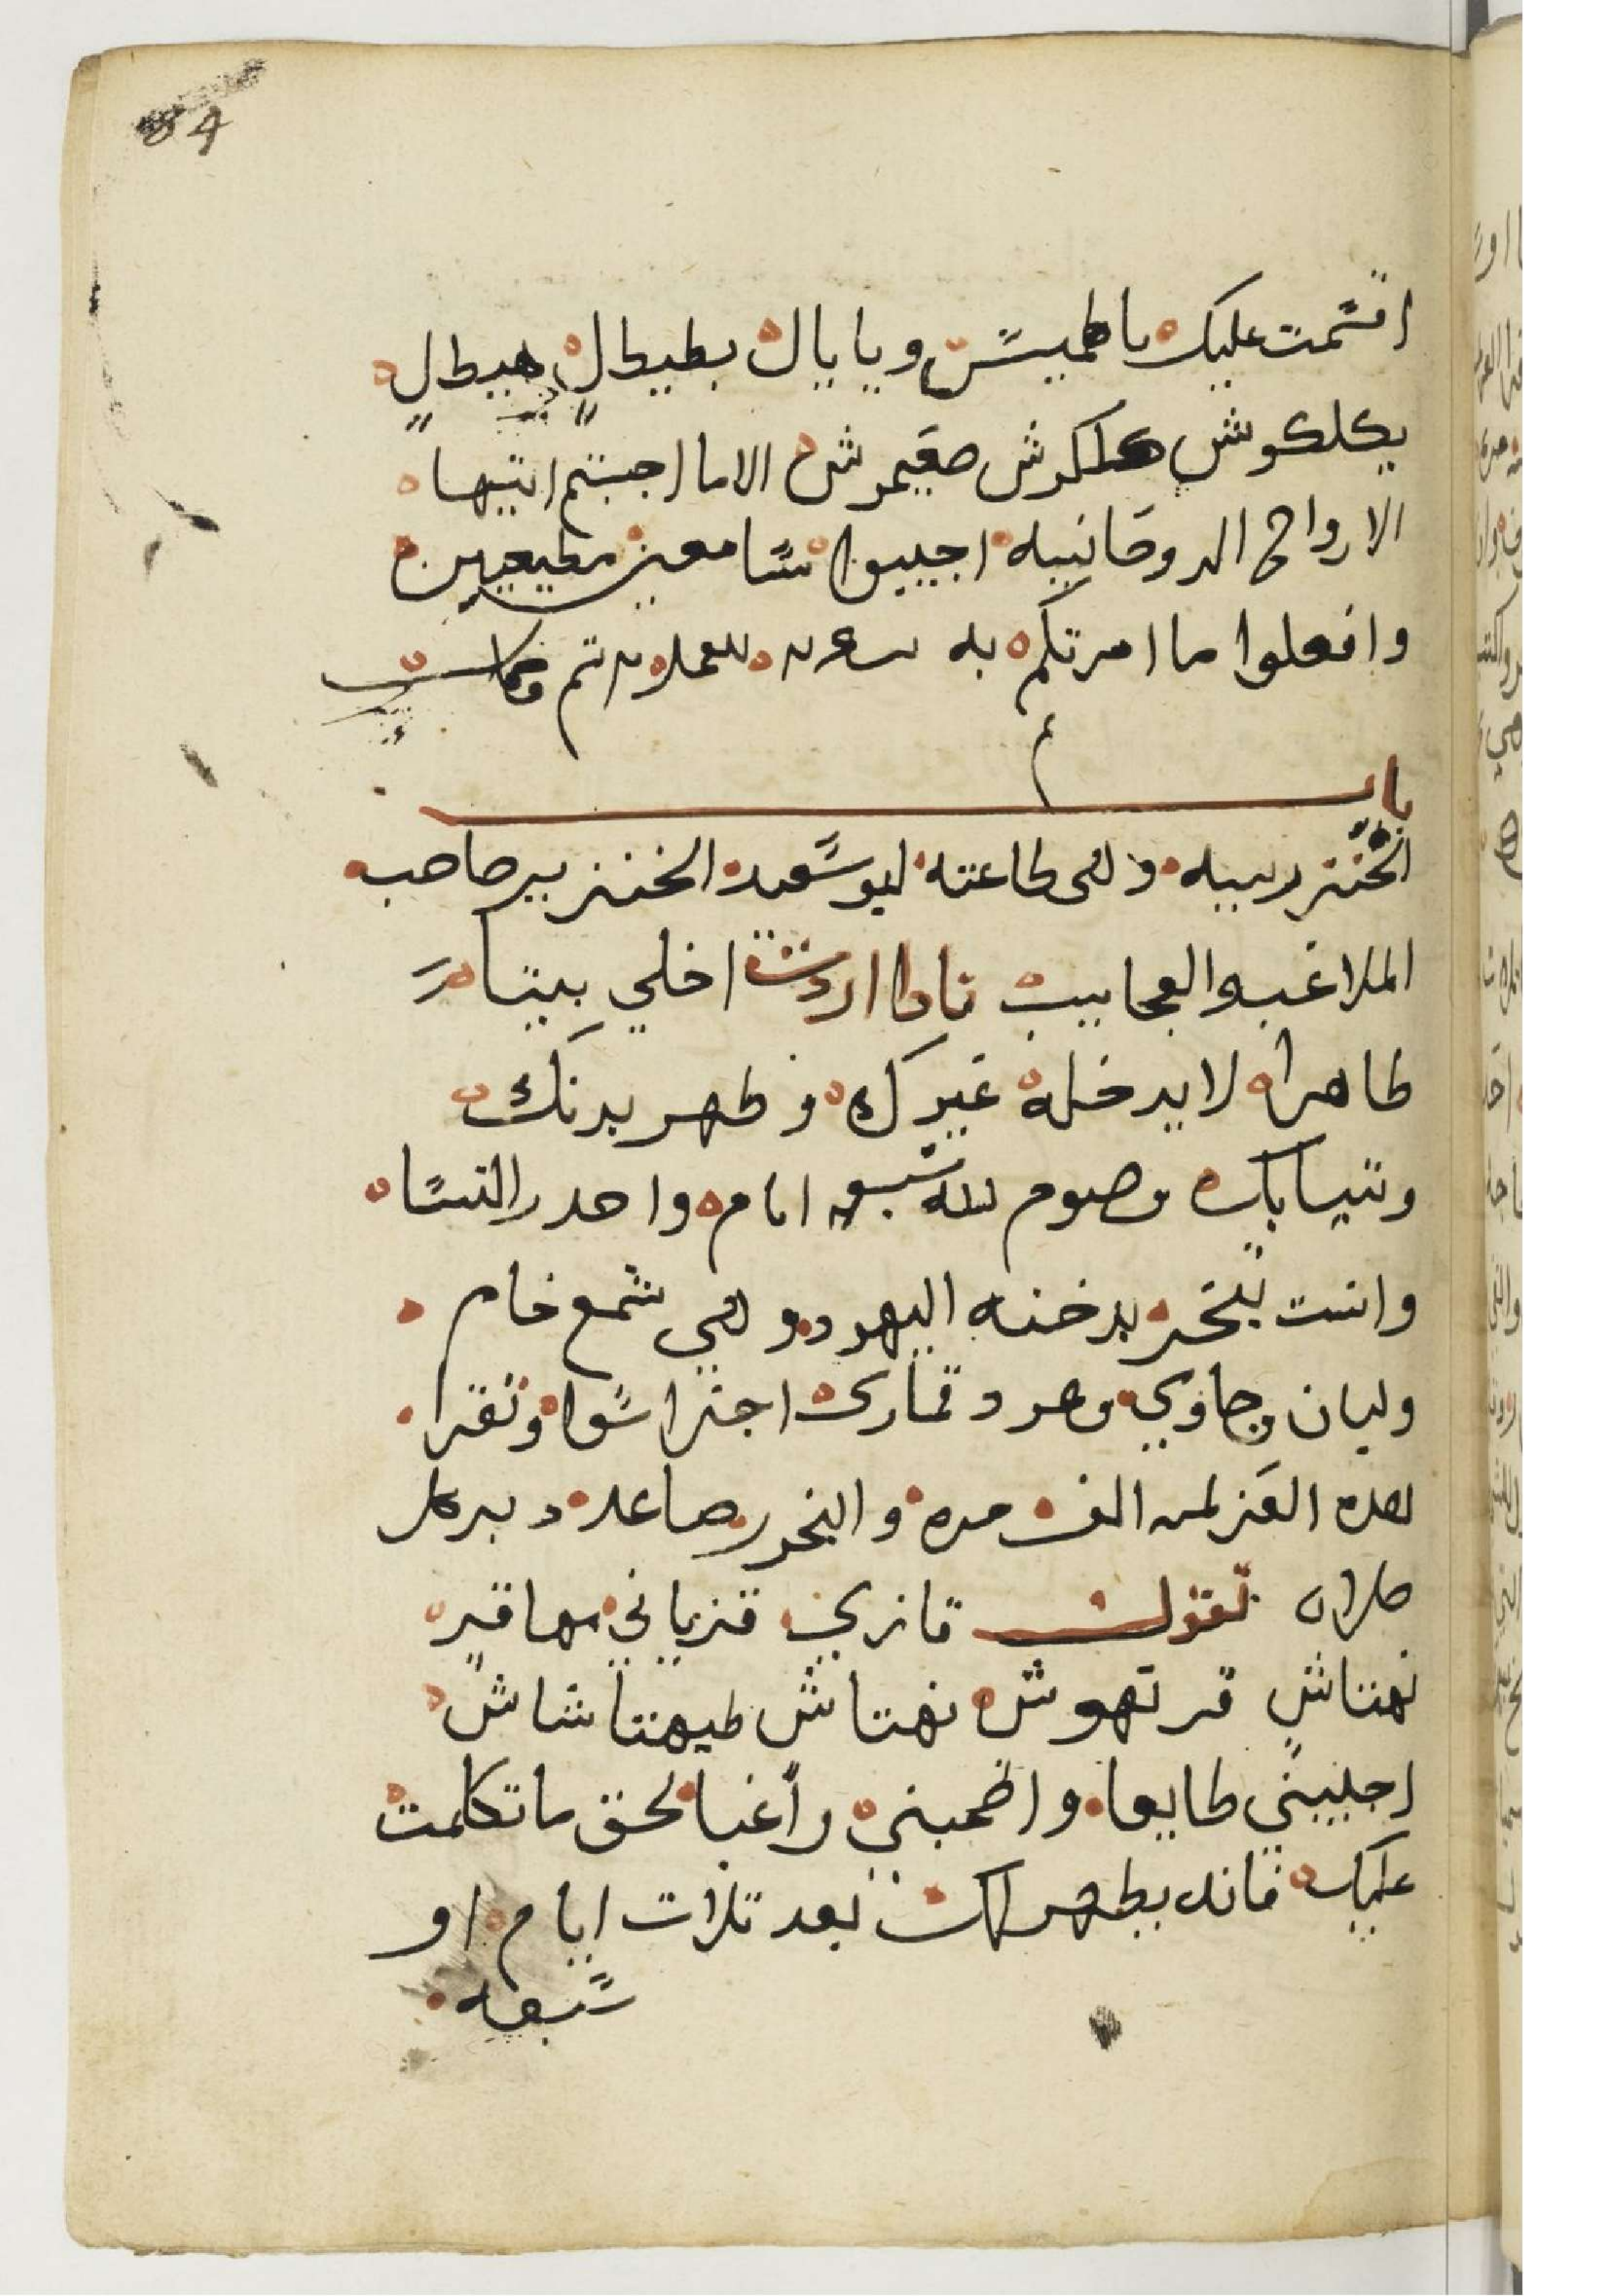 84
اقسمت عليك ياطميس ويايال بطيطال هيطال
بكلكوش هلكوش صقيمرش الاما اجبتم ايتها
الارواح الروحانييه اجيبوا سامعين مطيعين
وافعلوا ما امرتكم به تم
باب
الخنزيرييه وهي طاعته لبوسعيد الخنزير صاحب
الملاعب والعجاييب فاذا اردت اخلي بيتا
طاهرا لا يدخله غيرك وطهر بدنك
وتيابك وصوم لله سبعه ايام واحد والنسا
وانت تبخر بدخنه اليهود وهي شمع خام
ولبان وجاوي وعود قماري اجزا سوا وتقرا
هده العزيمه الف مره والبخور صاعد دبر كل
صلاه تقول قازي قزياني سهاقير
نهتاش قرتهوش نهتاش طيهتاشاش
اجيبني طايعا واظمبني راغبا بحق ما تكلمت
عليك فانه يظهر لك بعد تلات ايام او
سبعه